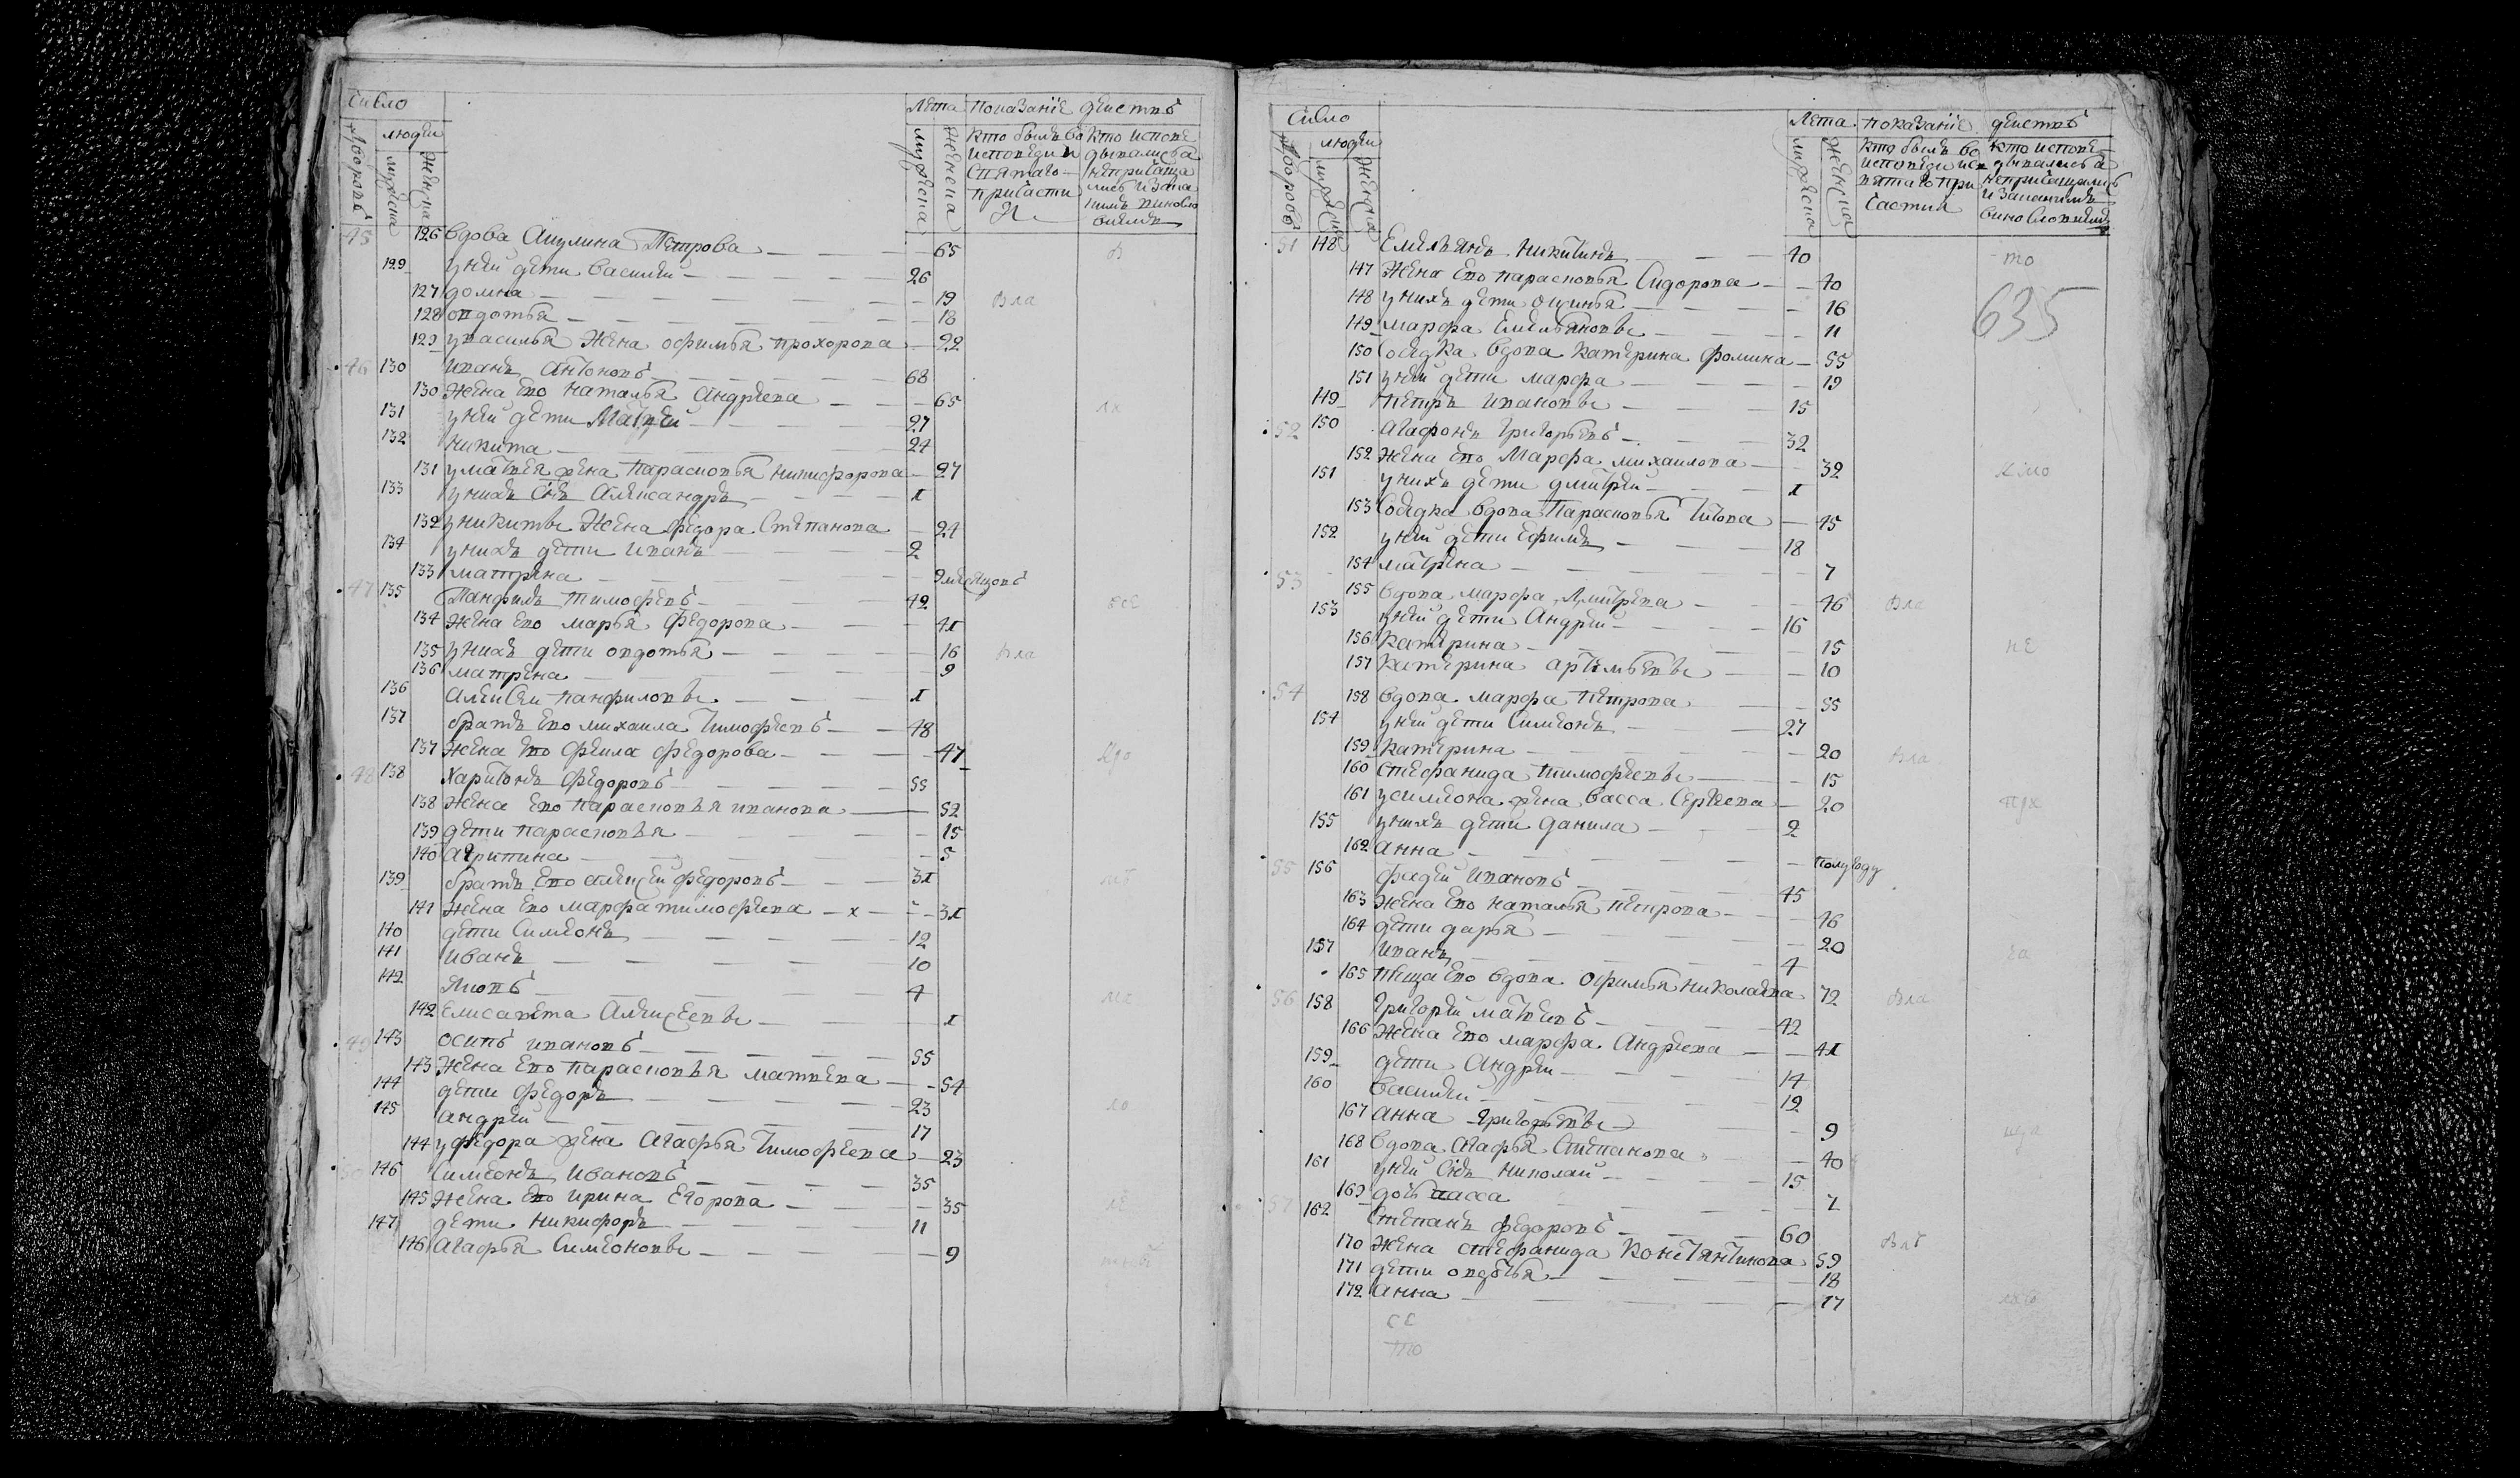 Сисло
Лѣта показаніе деиствъ
дворовъ людеи мужеска женска
мужеска женска
кто былъ во исповеди и святаго причастия
кто исповедывались а неприсаща лись и закакимъ виносло виемъ
45 126 вдова Акулина Петрова 65
129 унеи дети василеи 26
127 домна 19 вла
128 овдотья 18
129 увасилья жена офимья прохорова 22
46 130 Иванъ Антоновъ 68
130 жена ево наталья андреева 65
131 унеи дети Матвеи 27
132 никита 24
131 уматвея жена парасковья никифорова 27
133 унихъ снъ Александръ 1
132 уникиты жена федора степанова 24
134 унихъ дети иванъ 2
133 матрена 9 месяцовъ
47 135 Панфилъ тимофеевъ 42
134 жена ево марья федорова 41
135 унихъ дети овдотья 16 вла
136 матрена 9
136 алексеи панфиловы 1
137 братъ ево михаила тимофеевъ 48
137 жена ево фекла федорова 47
48 138 Харитонъ федоровъ 55
138 жена ево парасковья иванова 52
139 дети парасковья 15
140 агрипина 5
139 братъ ево алексеи федоровъ 31
141 жена ево марфа тимофеева х 31
140 дети симеонъ 12
141 иванъ 10
142 яковъ 4
142 елисавета алексеевы 1
49 143 осипъ ивановъ 55
143 жена ево парасковья матвеева 54
144 дети федоръ 23
145 андреи 17
144 уфедора жена агафья тимофеева 23
50 146 симеонъ ивановъ 35
145 жена ево ирина егорова 35
147 дети никифоръ 11
146 агафья симеоновы 9
Сисло
Лета показаніе деиствъ
дворовъ людеи мужеска женска
мужеска женска
кто былъ во исповеди исвятаго причастия
кто исповедывались а неприсащались и закакимъ винословиемъ
51 148 Емельянъ никитинъ 40
147 жена ево парасковья сидорова 40
635
148 унихъ дети окинья 16
149 марфа емельяновы 11
150 соседка вдова катерина фомина 55
151 унеи дети марфа 19
149 петръ ивановы 15
52 150 агафонъ григорьевъ 32
152 жена ево марфа михаилова 32
151 унихъ дети дмитреи 1
153 соседка вдова парасковья титова 45
152 унеи дети ефимъ 18
154 матрена 7
53 155 вдова марфа дмитрева 46 вла
153 унеи дети андреи 16
156 катерина 15
157 катерина артемьевы 10
54 158 вдова марфа петрова 55
154 унеи дети симеонъ 27
159 катерина 20 вла
160 стефанида тимофеевы 15
161 усимеона жена васса сергеева 20
155 унихъ дети данила 2
162 анна полугоду
55 156 фадеи ивановъ 45
163 жена ево наталья петрова 46
164 дети дарья 20
157 иванъ 4
165 теща ево вдова офимья николаева 72
56 158 григореи матвеевъ 42 вла
166 жена ево марфа андреева 41
159 дети андреи 14
160 василеи 12
167 анна григорьевы 9
168 вдова агафья степанова 40
161 унеи снъ николаи 15
169 дочь васса 7
57 162 степанъ федоровъ 60
170 жена стефанида констянтинова 59
171 дети овдотья 18
172 анна 17